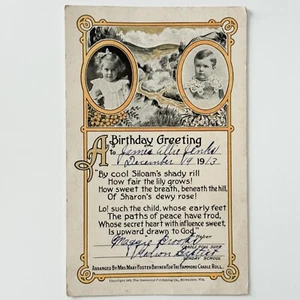 A Birthday Greeting
to James Allie Jenks
December 19 1913
"By cool Siloam's shady rill
How fair the lily grows!
How sweet the breath, beneath the hill,
Of Sharon's dewy rose!
Lo! such the child, whose early feet
The paths of peace have trod,
Whose secret heart with influence sweet,
Is upward drawn to God."
Maggie Brooks
CRADLE ROLL SUPT
SUNDAY SCHOOL
ARRANGED BY MRS. MARY FOSTER BRYNER FOR THE HAMMOND CRADLE ROLL.
The Hammond Publishing Co., Milwaukee, Wis.